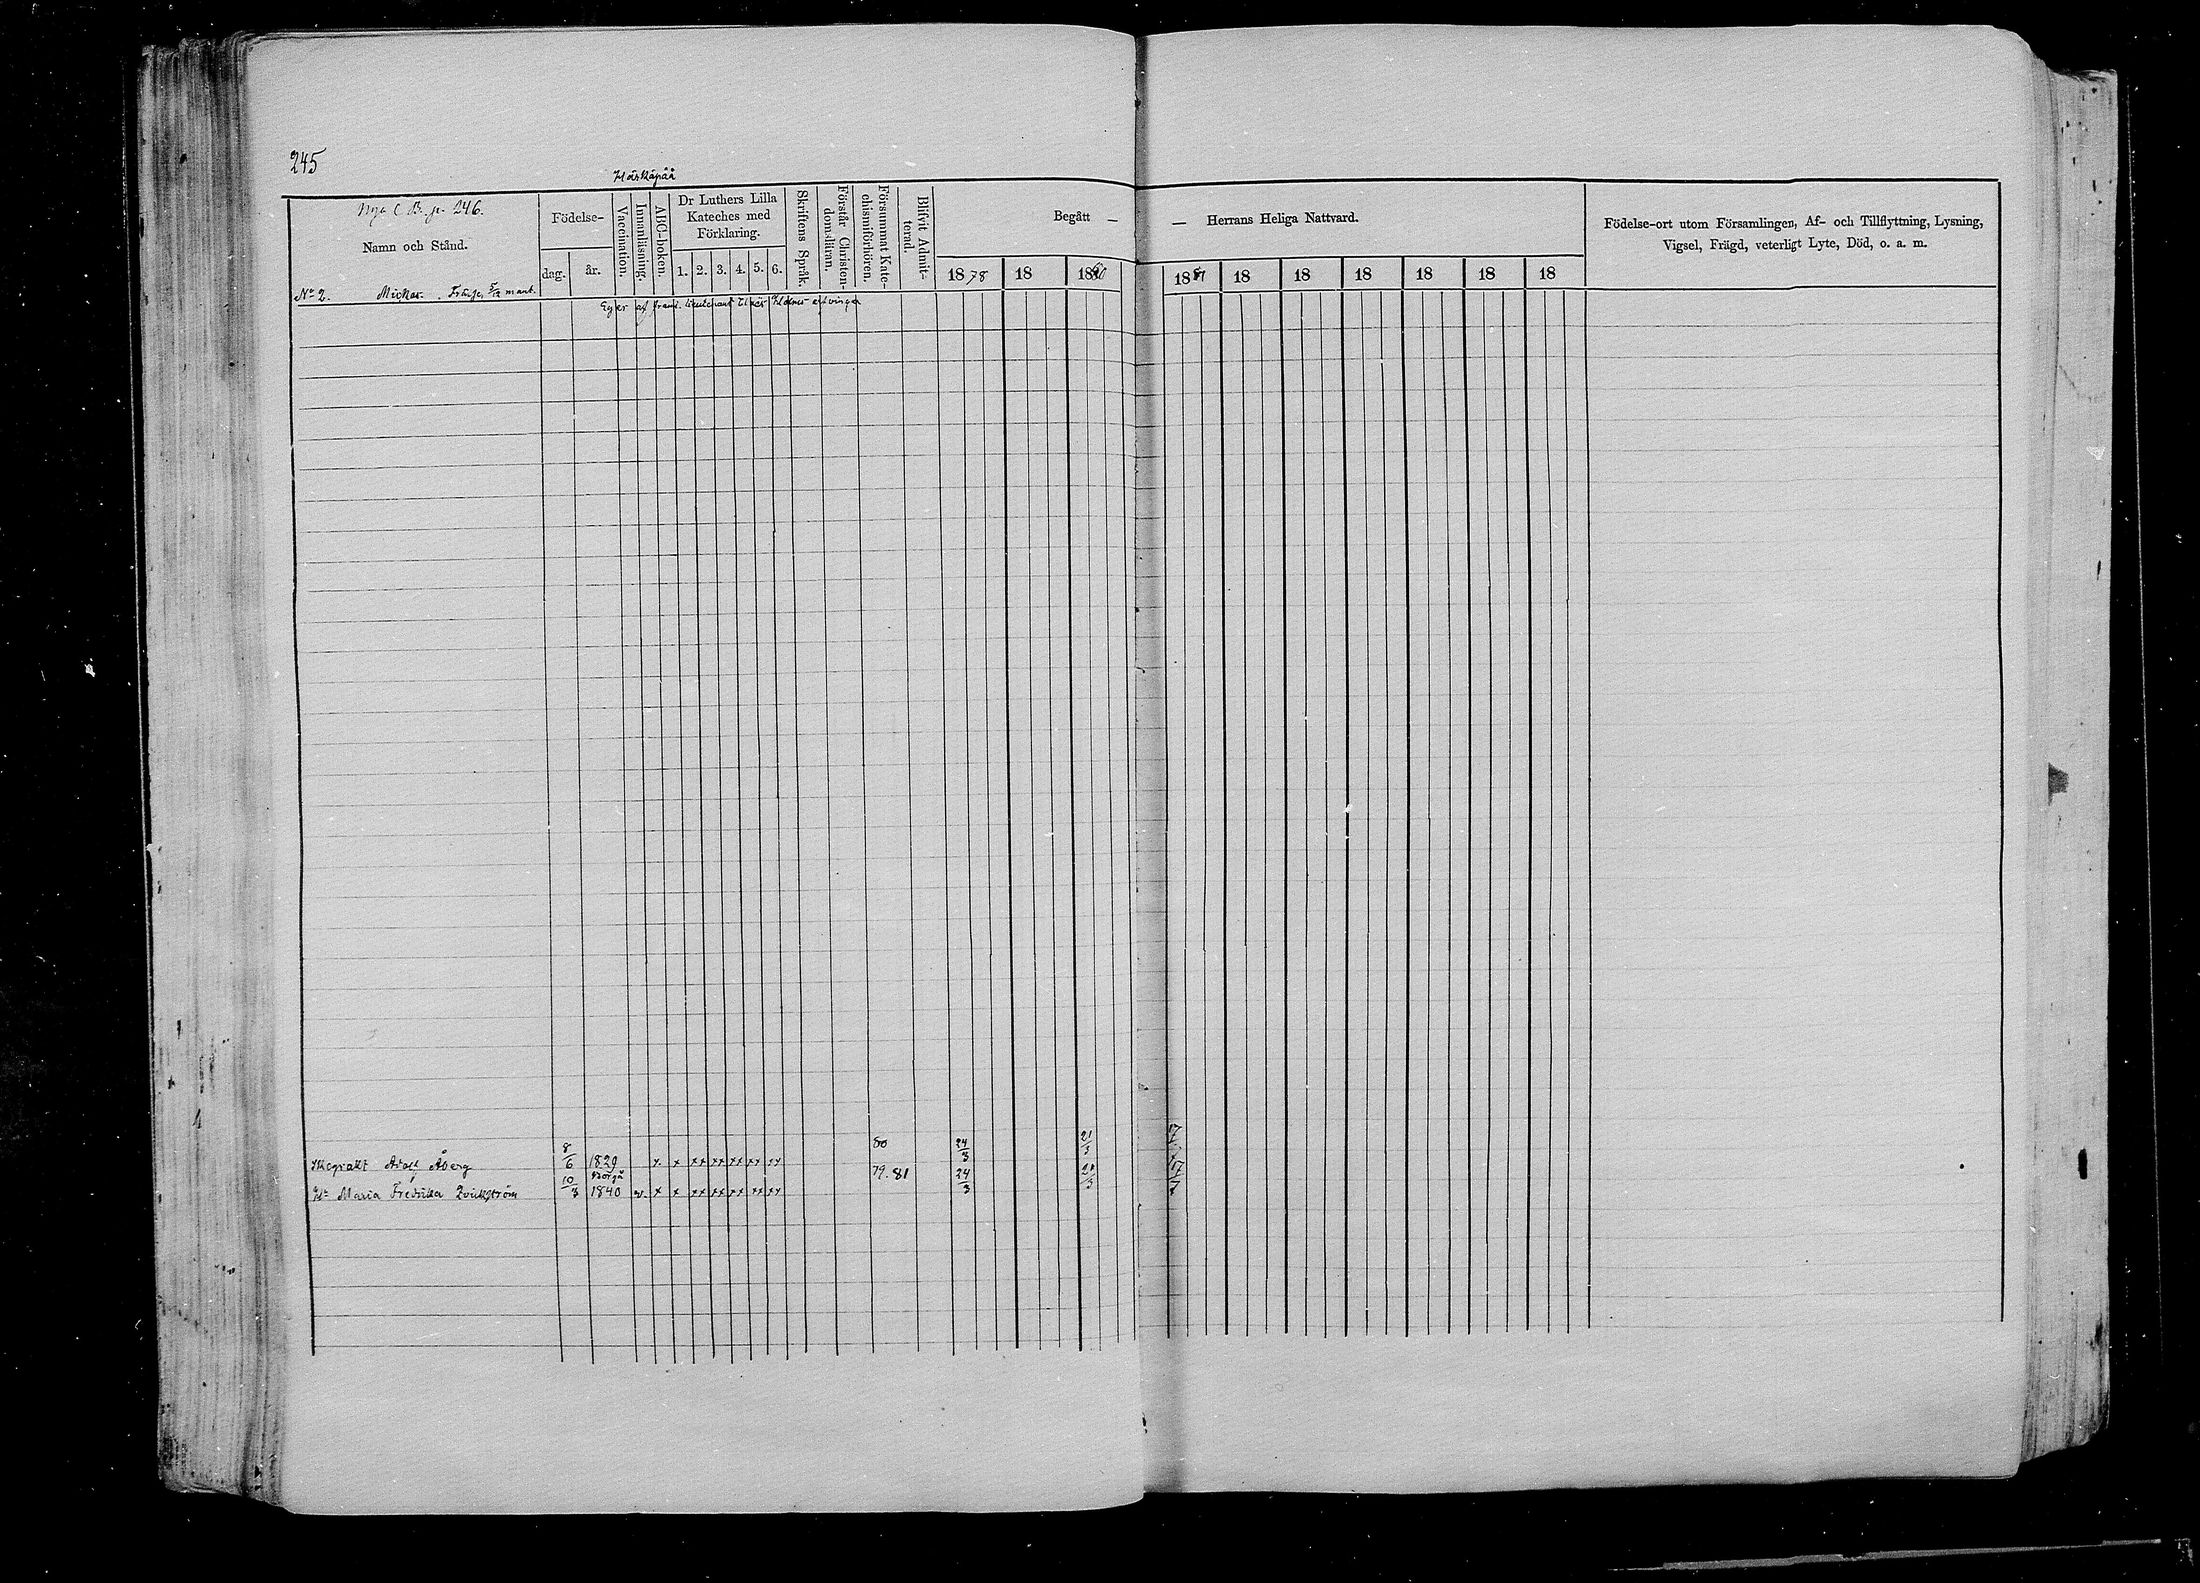 245
Härkäpää
Nya C. B. p. 246.
Namn och Stånd.
Födelse-
dag. år.
Vaccination.
Innanläsning.
ABC-boken.
Dr Luthers Lilla
Kateches med
Förklaring.
1. 2. 3. 4. 5. 6.
Skriftens Språk.
Förstår Christen-
domsläran.
Försummat Kate-
chismiförhören.
Blifvit Admit-
terad.
Begått —
— Herrans Heliga Nattvard.
1878 18 1880 1881 18 18 18 18 18 18
Födelse-ort utom Församlingen, Af- och Tillflyttning, Lysning,
Vigsel, Frägd, veterligt Lyte, Död, o. a. m.
No 2. Mickas. 5/12 mant.
Eges af framl. lieutenant arfvingar
80 24/3 21/3
Adolf Åberg 8/6 1829 x. x xx xx xx xx xx
Borgå 79. 81 24/3 21/3
Hu Maria Fredrika Qvickström 10/3 1840 v. x x xx xx xx xx xx